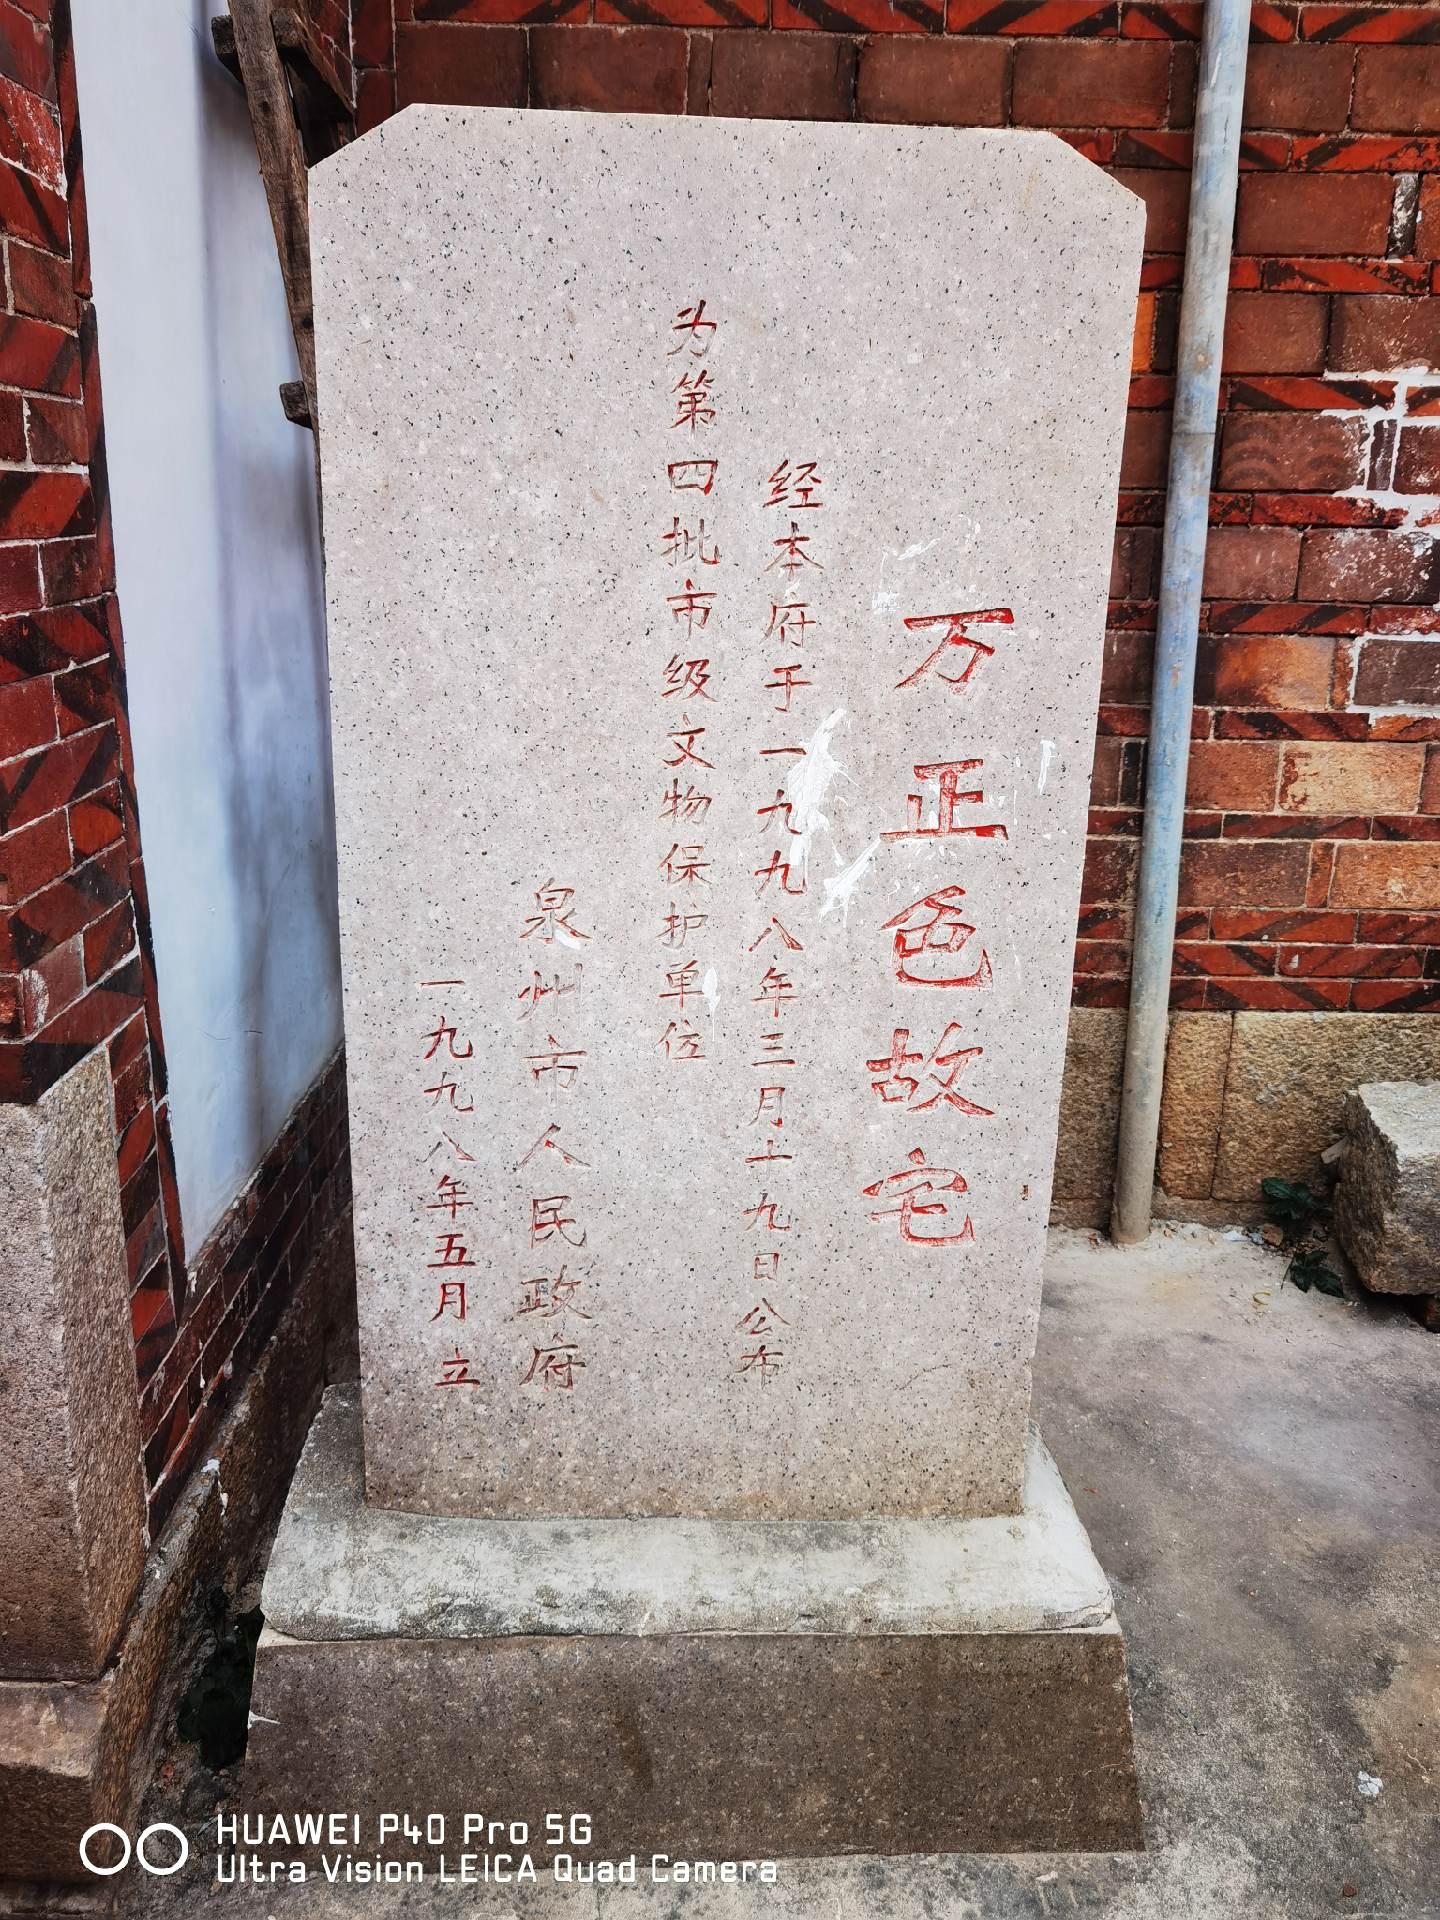 万正色故宅
经本府于一九九八年三月十九日公布
为第四批市级文物保护单位
泉州市人民政府
一九九八年五月立
HUAWEI P40 Pro 5G
Ultra Vision LEICA Quad Camera